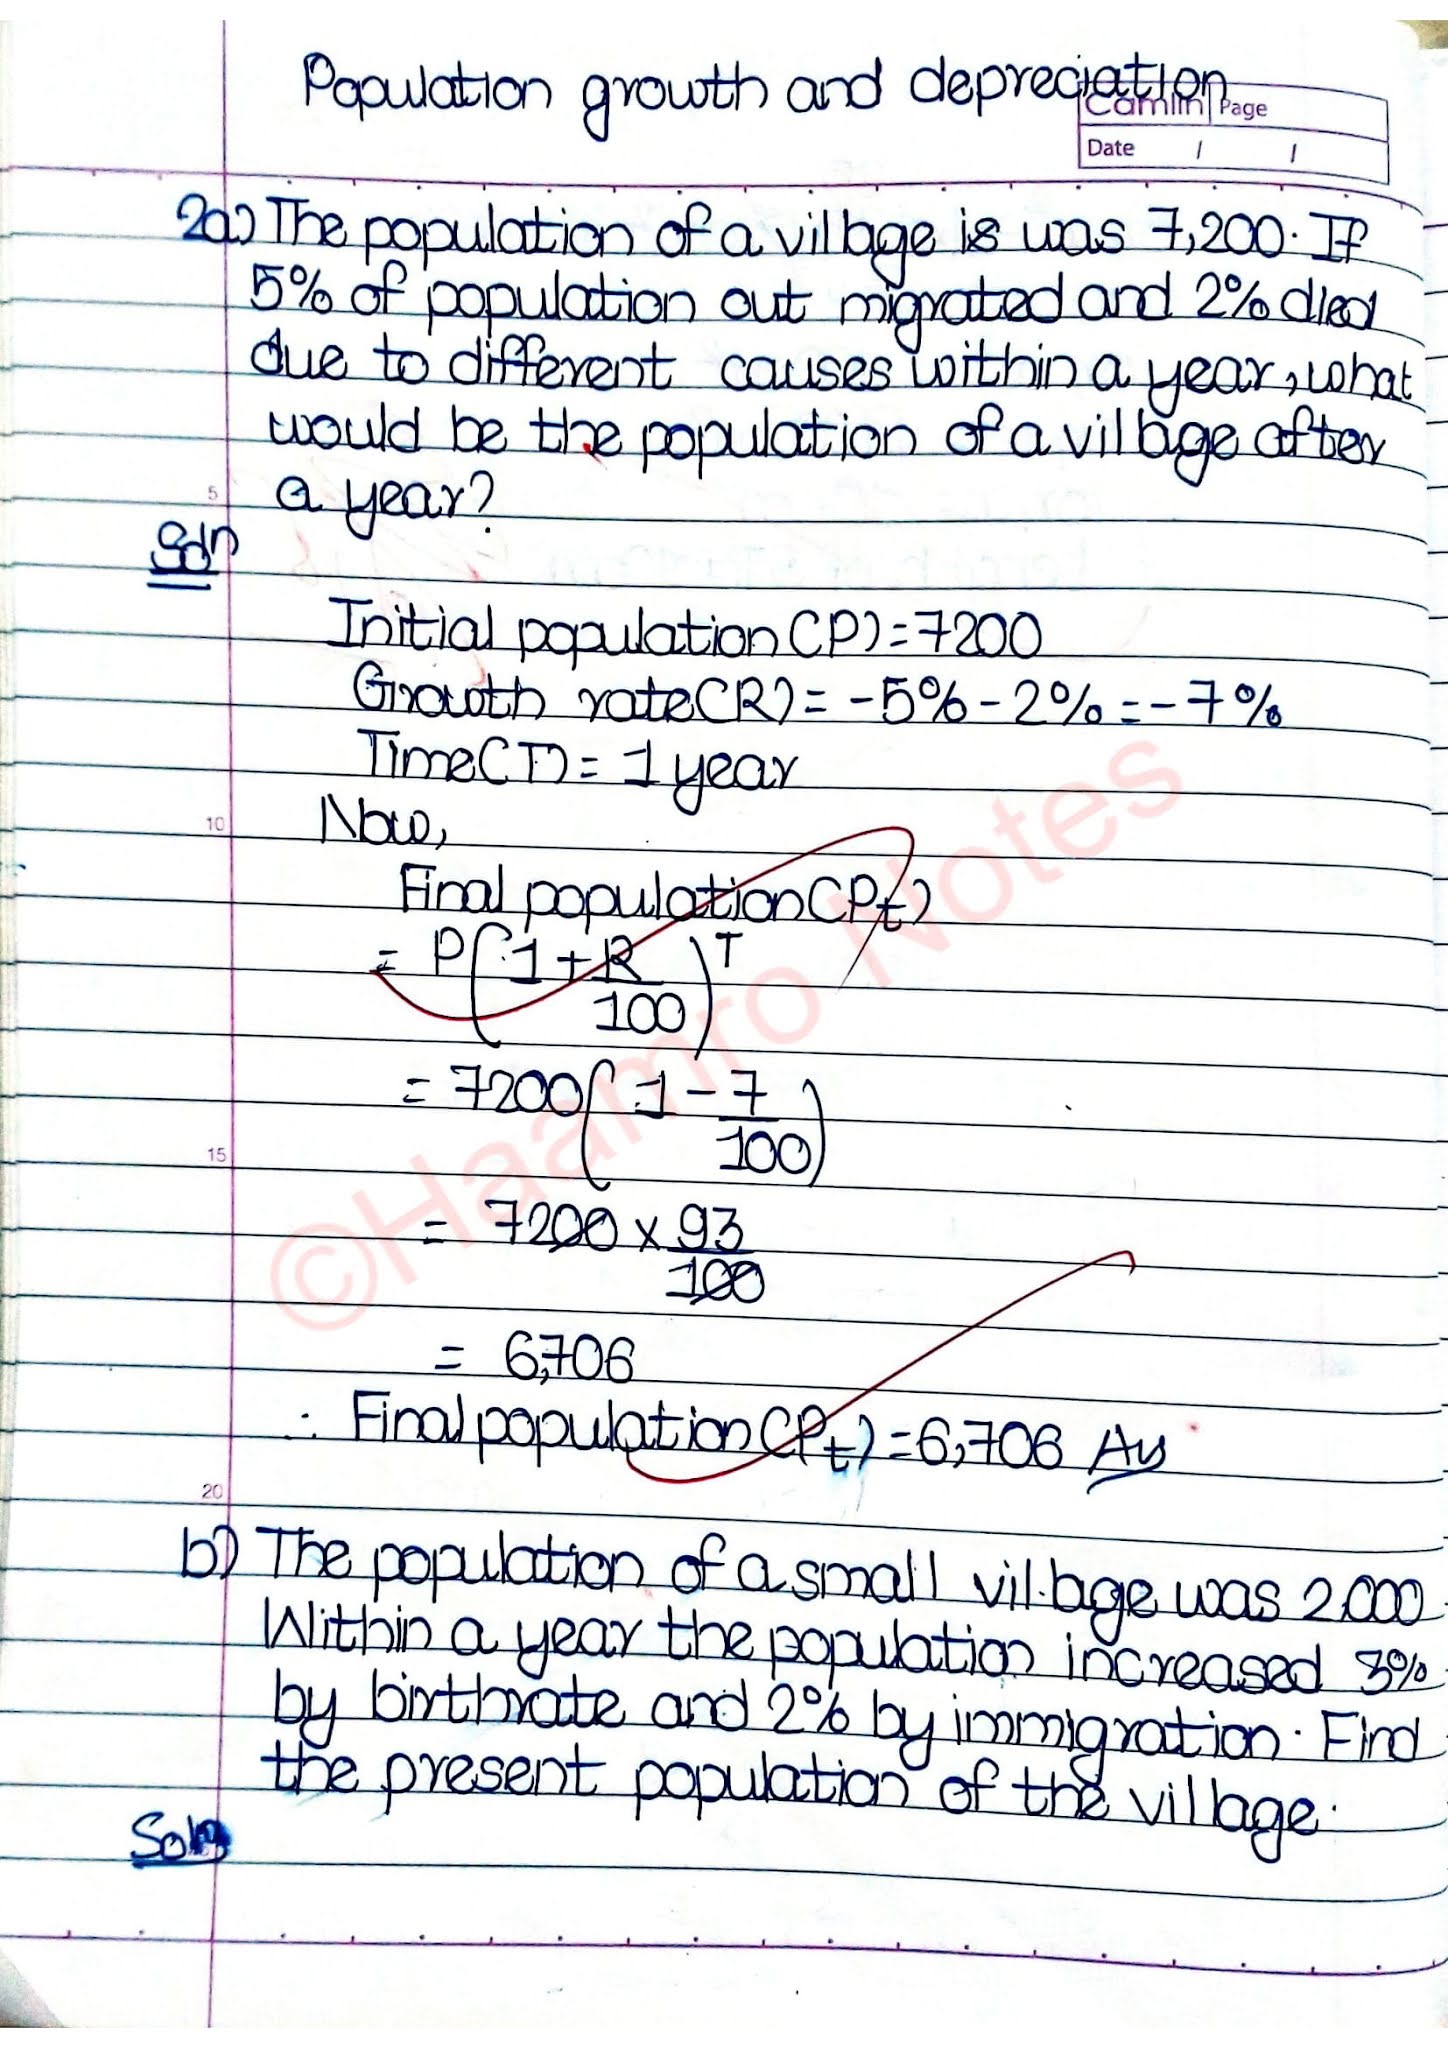 Population growth and depreciation
Camlin Page
Date / /
2a) The population of a village is was 7,200. If
5% of population out migrated and 2% died
due to different causes within a year, what
would be the population of a village after
5
a year?
Soln
Initial population (P) = 7200
Growth rate (R) = -5% - 2% = -7%
Time (T) = 1 year
10
Now,
Final population (Pt)
= P(1 + R/100)^T
= 7200(1 - 7/100)
15
= 7200 x 93/100
= 6,706
∴ Final population (Pt) = 6,706 Ans
20
b) The population of a small village was 2,000
Within a year the population increased 3%
by birthrate and 2% by immigration. Find
the present population of the village.
Soln
©Haamro Notes